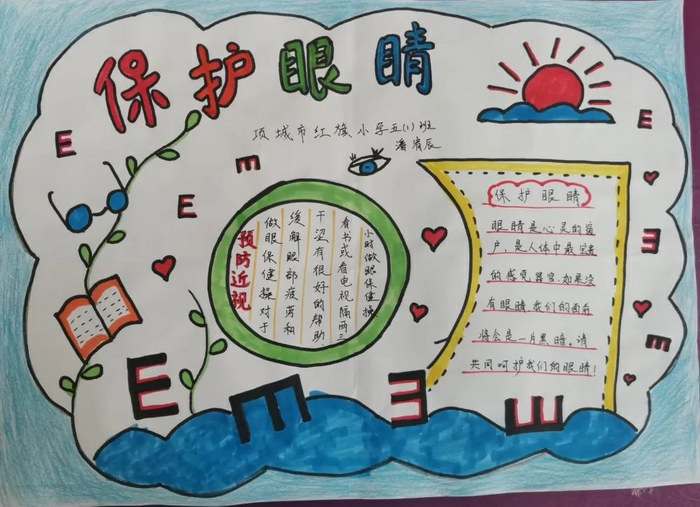 保护眼睛
项城市红旗小学五(1)班
潘 辰
E
E
E
E
E
E
预防近视
做眼保健操对于
缓解眼部疲劳和
干涩有很好的帮助
看书或看电视隔两三
小时做眼保健操
保护眼睛
眼睛是心灵的窗
户，是人体中最宝贵
的感觉器官.如果没
有眼睛,我们的面前
将会是一片黑暗。请
共同呵护我们的眼睛！
E
E
E
E